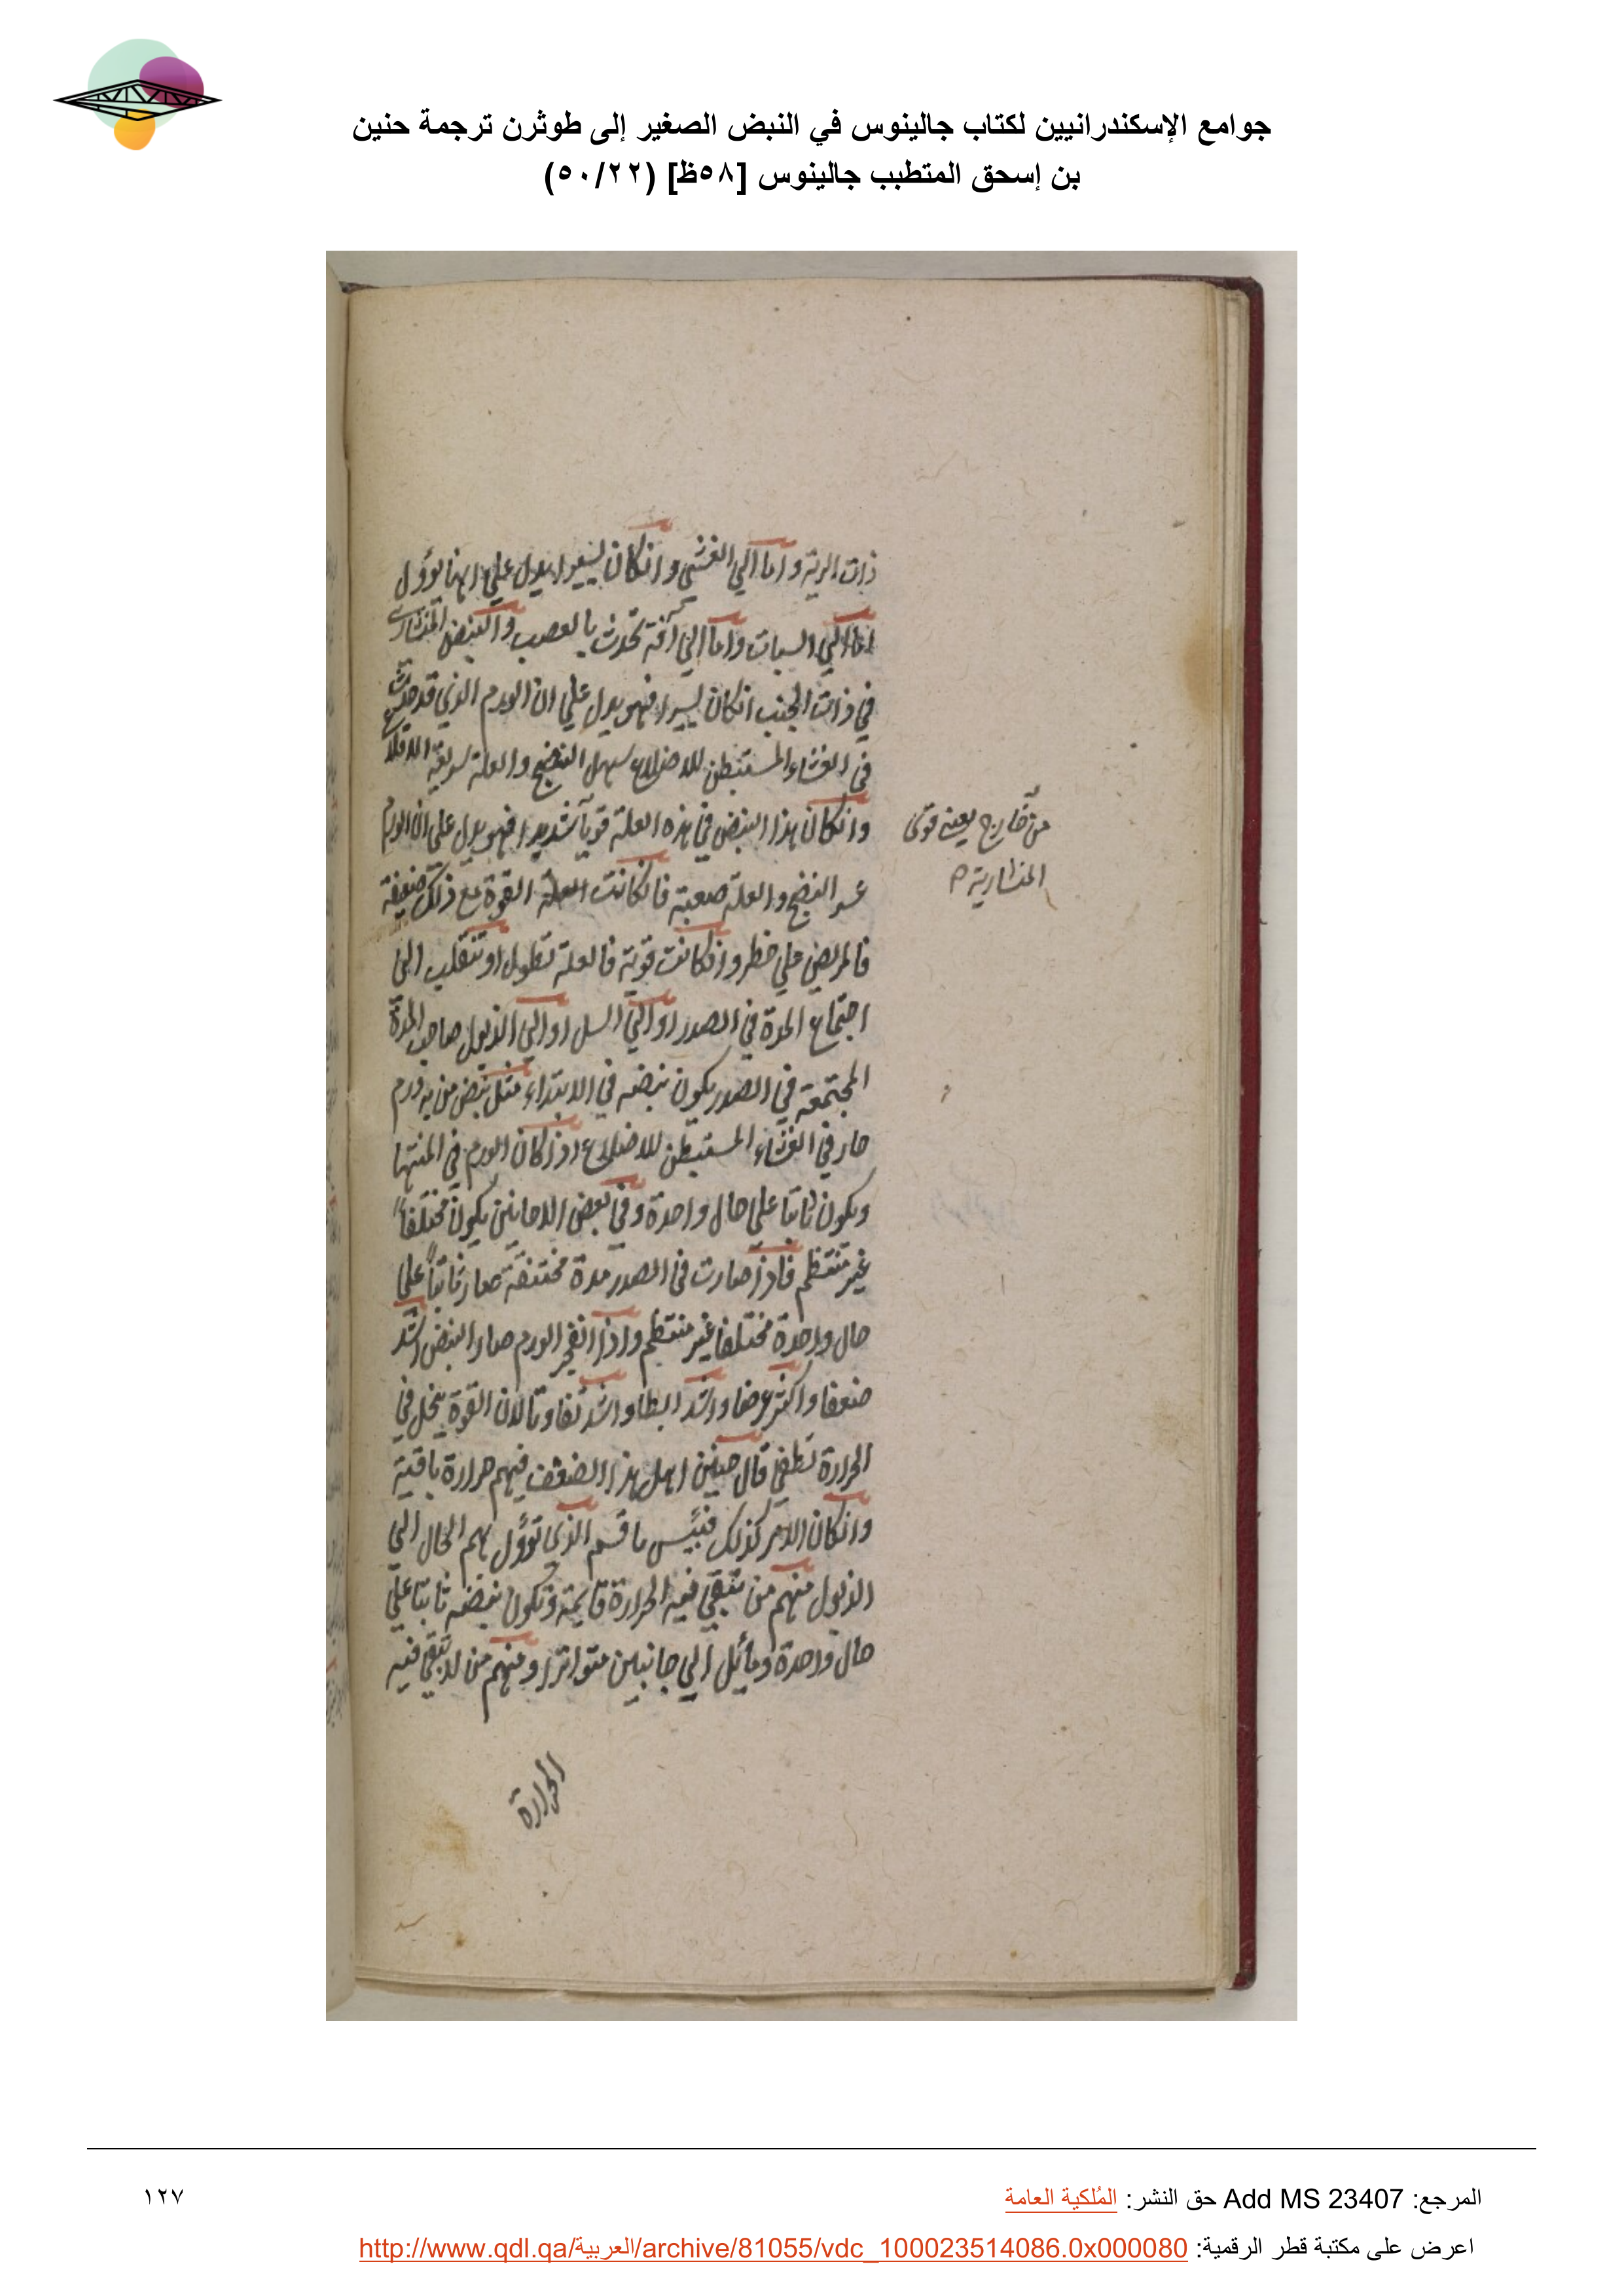 جوامع الإسكندرانيين لكتاب جالينوس في النبض الصغير إلى طوثرن ترجمة حنين
بن إسحق المتطبب جالينوس [٥٨ظ] (٥٠/٢٢)
ذات الرية واما الي الغشي وانكان يسيرا يدل علي انها يؤول
اما الي السبات واما الي آفة تحدث بالعصب والنبض المنشاري
في ذات الجنب انكان يسيرا فهو يدل علي ان الورم الذي قد حدث
في الغشاء المستبطن للاضلاع سهل النضج والعلة سريعة الاقلاع
وانكان هذا النبض في هذه العلة قويا شديدا فهو يدل علي ان الورم
من خارج يعني قوى
المنشارية
عسر النضج والعلة صعبة فانكانت القوة مع ذلك ضعيفة
فالمريض علي خطر وانكانت قوية فالعلة تطول او تنقلب الى
اجتماع المدة في الصدر او الي السل او الى الذبول صاحب المدة
المجتمعة في الصدر يكون نبضه في الابتداء مثل نبض من به ورم
حار في الغشاء المستبطن للاضلاع اذا كان الورم في المنتها
ويكون ثابتا علي حال واحدة وفي بعض الاحايين يكون مختلفا
غير منتظم فاذا صارت في الصدر مدة مختنقة صار ثابتا على
حال واحدة مختلفا غير منتظم واذا انفجر الورم صار النبض اشد
ضعفا واكثر عرضا واشد ابطا واشد تفاوتا لان القوة ينحل في
الحرارة تطفي قال حنين اهل هذا الضعف فيهم حرارة باقية
وانكان الامر كذلك فبئس ما قسم الذى تؤول بهم الحال الي
الذبول منهم من تبقي فيه الحرارة قايمة وتكون نبضه ثابتا علي
حال واحدة ومائل الي جانبين متواترا ومنهم من لا تبقي فيه
الحرارة
المرجع: Add MS 23407 حق النشر: المُلكية العامة
١٢٧
اعرض على مكتبة قطر الرقمية: http://www.qdl.qa/العربية/archive/81055/vdc_100023514086.0x000080